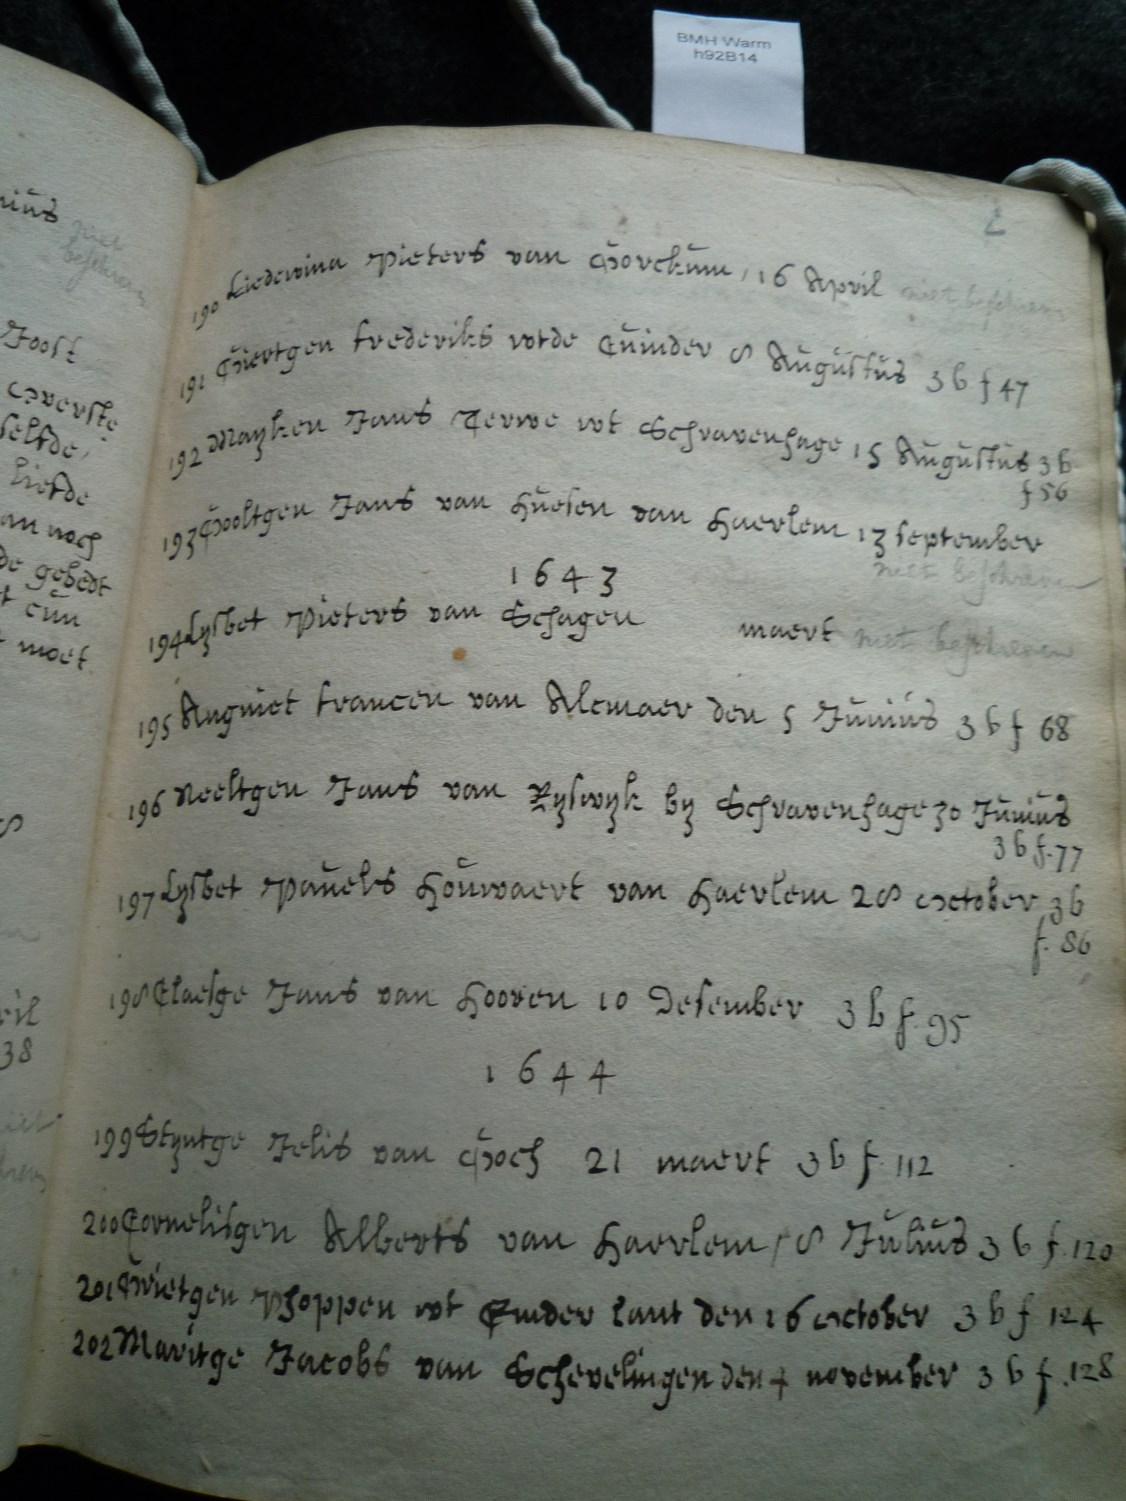 BMH Warm
h92B14
190 Liedewina Pieters van Gorckum, 16 April niet beschreven
191 Giertgen frederiks wtde Cuinder 8 Augustus 3 b f 47
192 Mayken Jans Terwe wt Schravenhage 15 Augustus 3 b
f 56
193 Gooltgen Jans van Huesen van Haerlem 13 september
niet beschreven
1643
194 Lysbet Pieters van Schagen maert niet beschreven
195 Angniet francen van Alcmaer den 5 Junius 3 b f 68
196 Neeltgen Jans van Ryswyk by Schravenhage 30 Junius
3 b f. 77
197 Lysbet Pauels Houwaert van Haerlem 28 October 3 b
f. 86
198 Claesge Jans van Hooren 10 Desember 3 b f. 95
1644
199 Styntge Jelis van Goch 21 maert 3 b f. 112
200 Cornelisgen Alberts van Haerlem, 8 Julius 3 b f. 120
201 Grietgen Phoppen wt Emder lant den 16 october 3 b f 124
202 Maritge Jacobs van Schevelingen den 4 november 3 b f. 128
nius niet
beschreven
Joost
overste
selfde,
liefde
an noch
de gebedt
moet
38